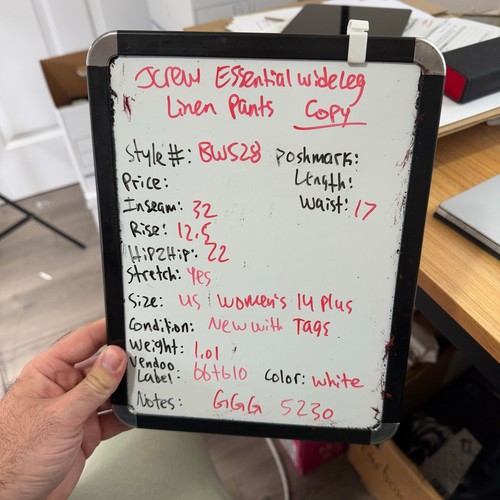 JCREW Essential wide leg
Linen Pants Copy
Style #: BW528 Poshmark:
Price: Length:
Inseam: 32 Waist: 17
Rise: 12.5
Hip2Hip: 22
Stretch: Yes
Size: US Women's 14 Plus
Condition: New with Tags
Weight: 1.01
Vendoo
Label: bbtb10 Color: white
Notes: GGG 5230